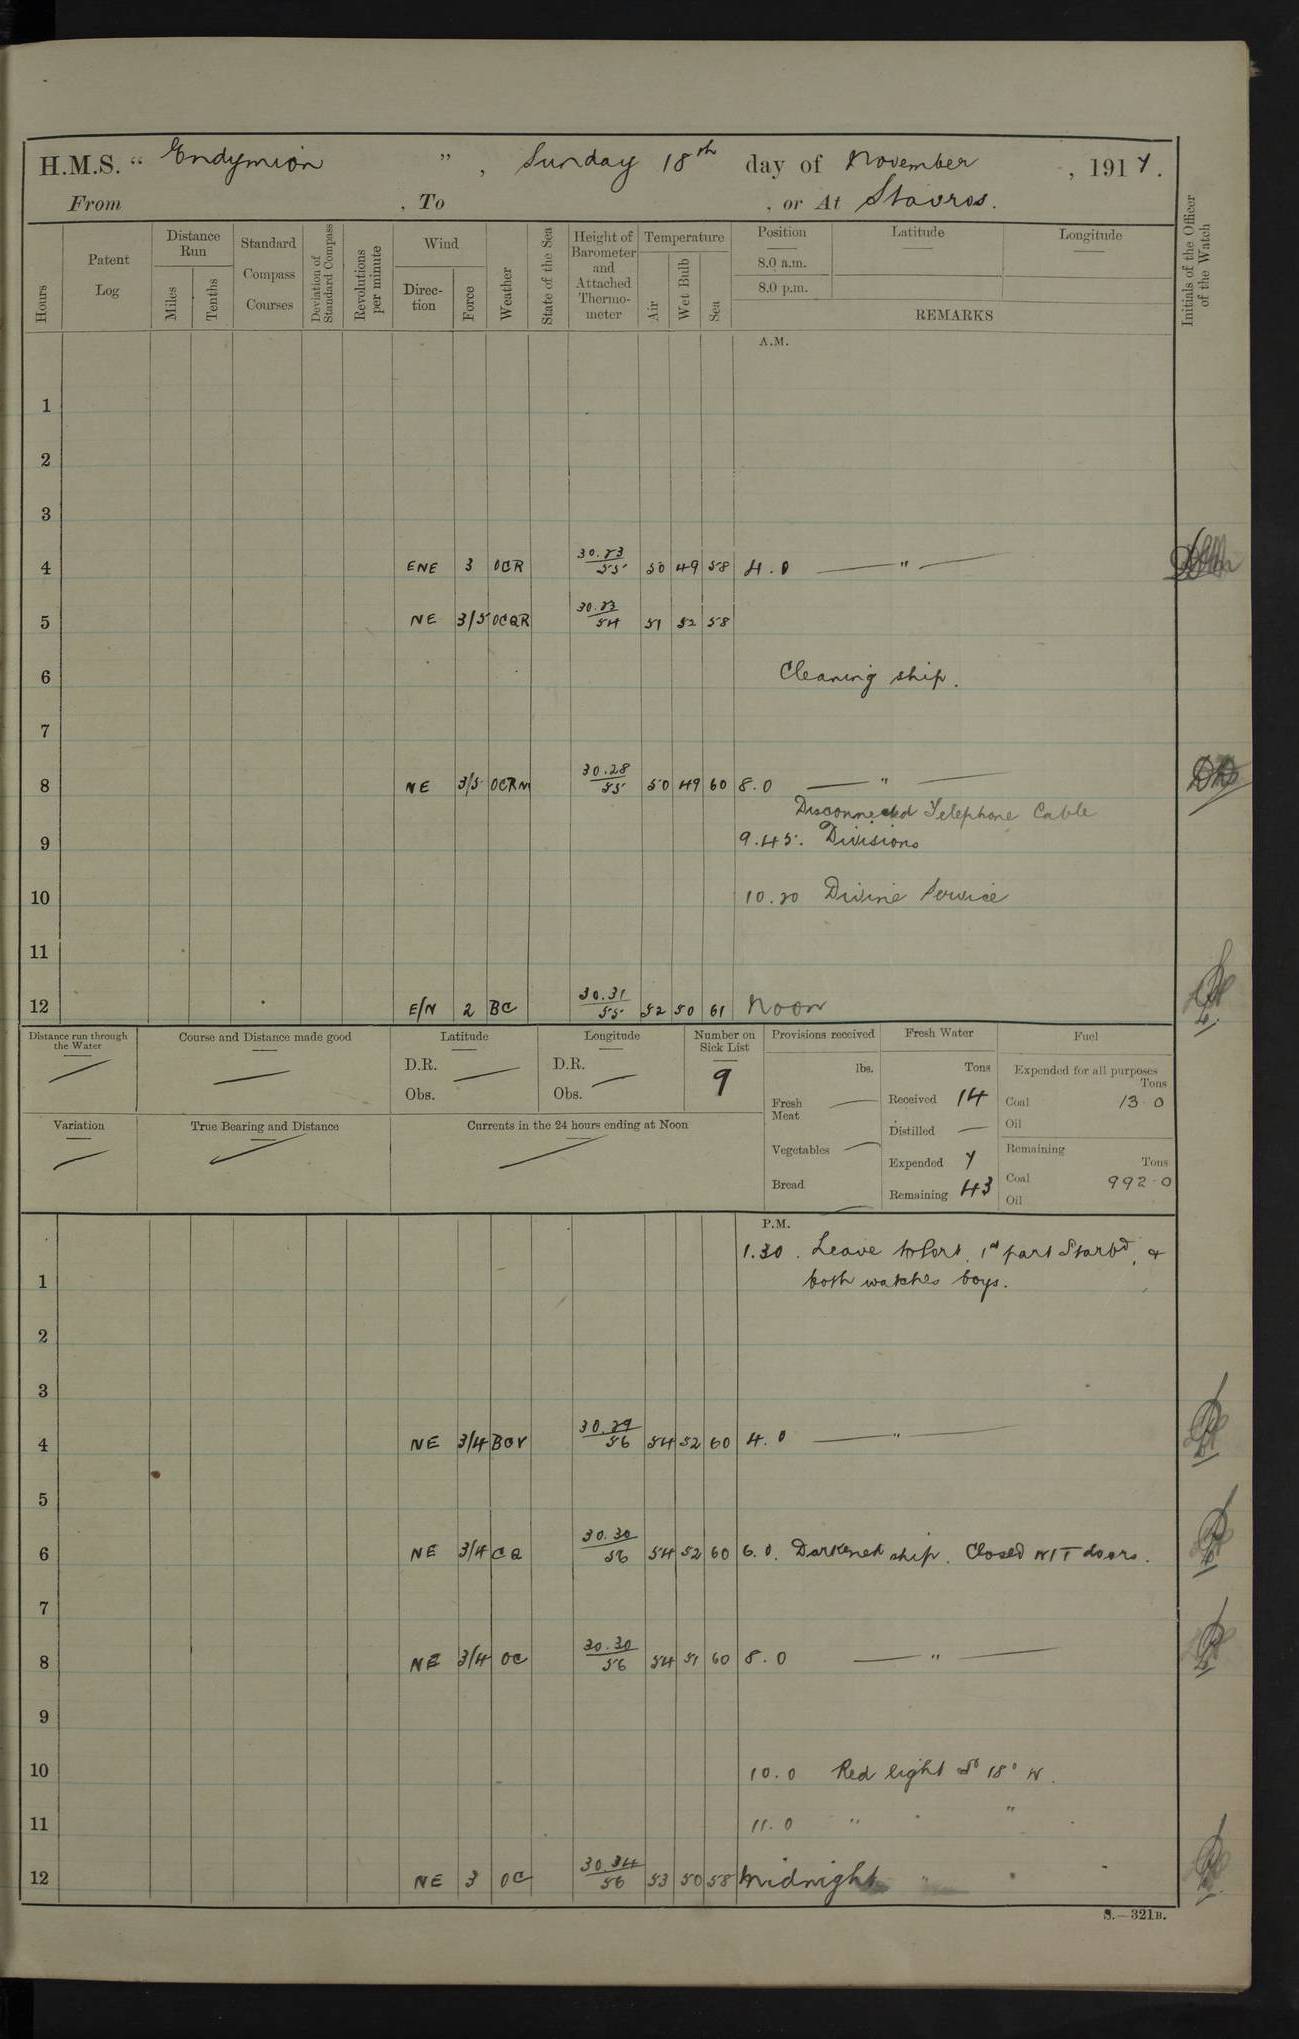 H.M.S. “ Endymion ” , Sunday 18th day of November , 1917.
From , To , or At Stavros.
Hours
Patent Log
Distance Run
Miles
Tenths
Standard Compass Courses
Deviation of Standard Compass
Revolutions per minute
Wind
Direction
Force
Weather
State of the Sea
Height of Barometer and Attached Thermometer
Temperature
Air
Wet Bulb
Sea
Position
8.0 a.m.
8.0 p.m.
Latitude
Longitude
REMARKS
Initials of the Officer of the Watch
A.M.
1
2
3
4 ENE 3 OCR 30.23/55 50 49 58 4.0 — " —
5 NE 3/5 OCQR 30.23/54 51 52 58
6 Cleaning ship.
7
8 NE 3/5 OCRM 30.28/55 50 49 60 8.0 — " —
Disconnected Telephone Cable
9 9.45. Divisions
10 10.20 Divine Service
11
12 E/N 2 BC 30.31/55 52 50 61 Noon
Distance run through the Water —
Course and Distance made good —
Latitude
D.R.
Obs. —
Longitude
D.R.
Obs. —
Number on Sick List
9
Provisions received
lbs.
Fresh Meat —
Vegetables —
Bread —
Fresh Water
Tons
Received 14
Distilled —
Expended 7
Remaining 43
Fuel
Expended for all purposes
Tons
Coal 13 0
Oil
Remaining
Tons
Coal 992.0
Oil
Variation —
True Bearing and Distance —
Currents in the 24 hours ending at Noon —
P.M.
1.30. Leave to Port, 1st part Starbd, &
1 both watches boys.
2
3
4 NE 3/4 BCV 30.29/56 54 52 60 4.0 — " —
5
6 NE 3/4 CQ 30.30/56 54 52 60 6.0. Darkened ship. Closed W/T doors.
7
8 NE 3/4 OC 30.30/56 54 51 60 8.0 — " —
9
10 10.0 Red light 18° W.
11 11.0 " " "
12 NE 3 OC 30.34/56 53 50 58 Midnight " "
S.—321B.